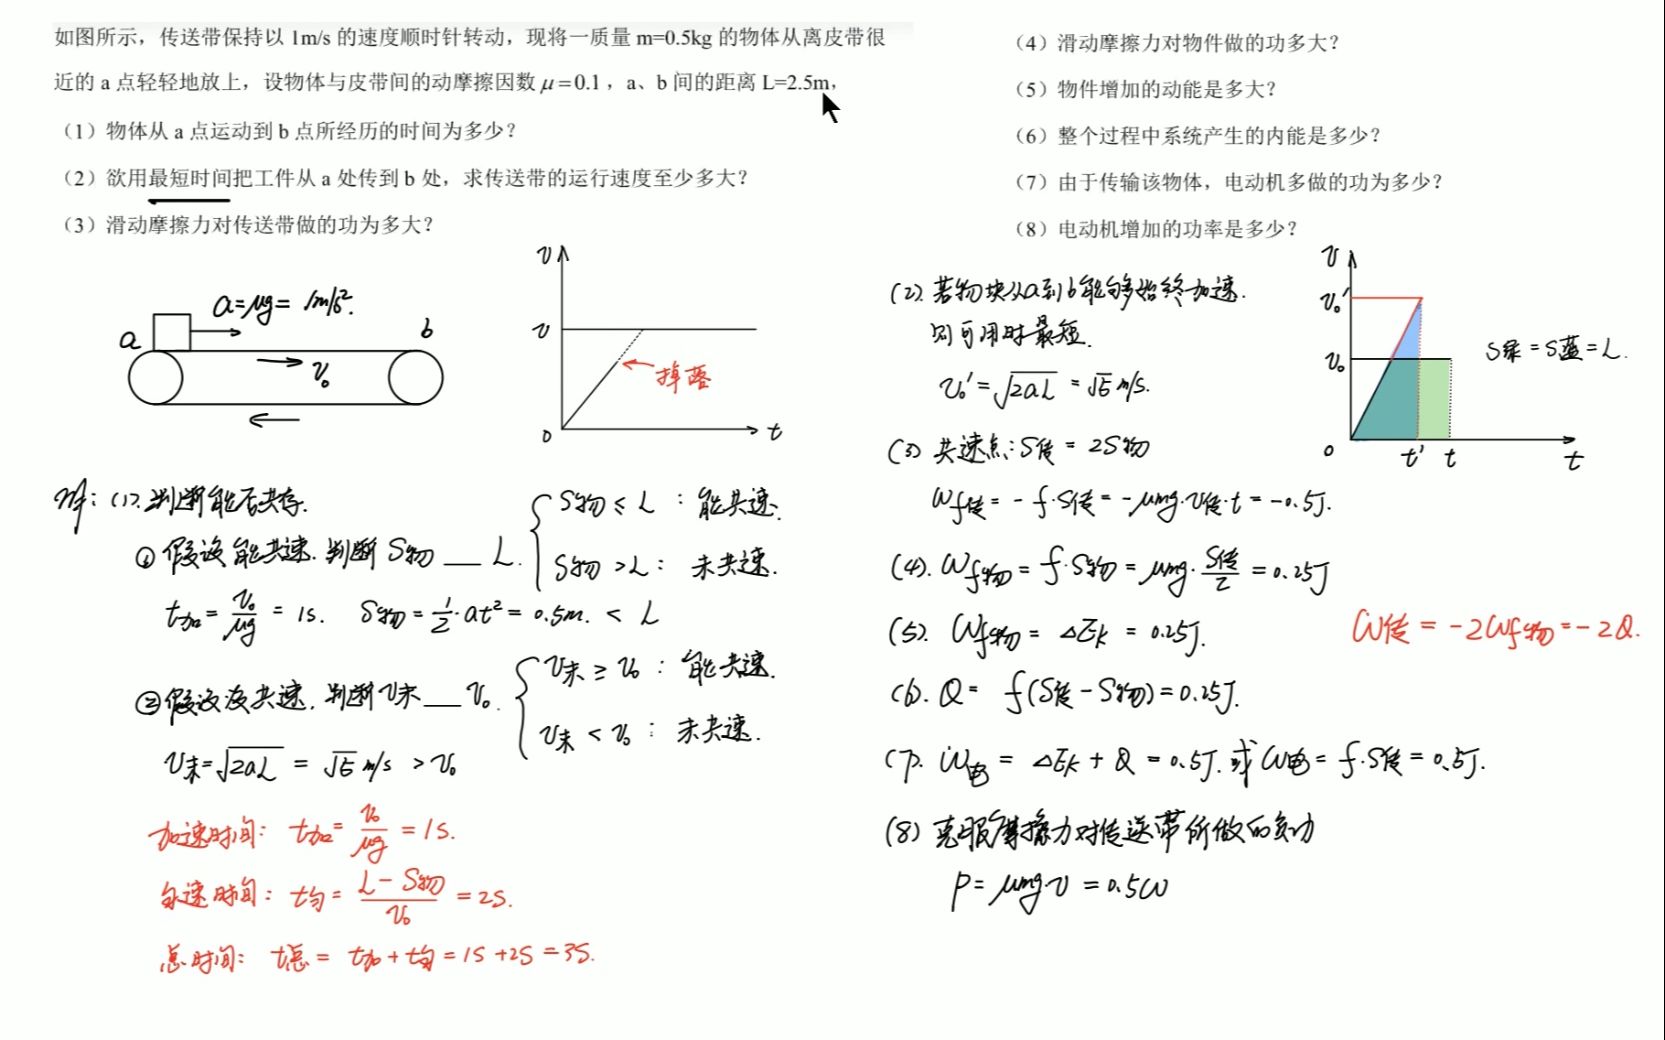 如图所示，传送带保持以 1m/s 的速度顺时针转动，现将一质量 m=0.5kg 的物体从离皮带很
近的 a 点轻轻地放上，设物体与皮带间的动摩擦因数 μ=0.1，a、b 间的距离 L=2.5m，
（1）物体从 a 点运动到 b 点所经历的时间为多少？
（2）欲用最短时间把工件从 a 处传到 b 处，求传送带的运行速度至少多大？
（3）滑动摩擦力对传送带做的功为多大？
a=μg= 1m/s².
a
b
v₀
v
v
0
t
掉落
解：(1).判断能否共存.
①假设能共速.判断S物 __ L.
S物 ≤ L ：能共速.
S物 >L： 未共速.
t加= v₀/μg = 1s. S物= 1/2·at²= 0.5m. < L
②假设没共速.判断v末 __ v₀.
v末 ≥ v₀ ：能共速.
v末 < v₀ ：未共速.
v末=√2aL = √5 m/s > v₀
加速时间： t加= v₀/μg = 1s.
匀速时间：t匀= (L-S物)/v₀ = 2s.
总时间： t总= t加+t匀= 1s+2s=3s.
（4）滑动摩擦力对物件做的功多大？
（5）物件增加的动能是多大？
（6）整个过程中系统产生的内能是多少？
（7）由于传输该物体，电动机多做的功为多少？
（8）电动机增加的功率是多少？
(2). 若物块从a到b能够始终加速.
则可用时最短.
v₀'=√2aL = √5 m/s.
v
v₀'
v₀
0
t'
t
t
S绿=S蓝=L.
(3) 共速点：S传= 2S物
Wf传= -f·S传= -μmg·v传·t = -0.5J.
(4). Wf物= f·S物= μmg· S传/2 = 0.25J
(5). Wf物= ΔEk = 0.25J.
W传= -2Wf物= -2Q.
(6). Q= f(S传-S物)=0.25J.
(7). W电 = ΔEk + Q = 0.5J.或W电= f·S传= 0.5J.
(8) 克服摩擦力对传送带所做的负功
P= μmgv = 0.5W